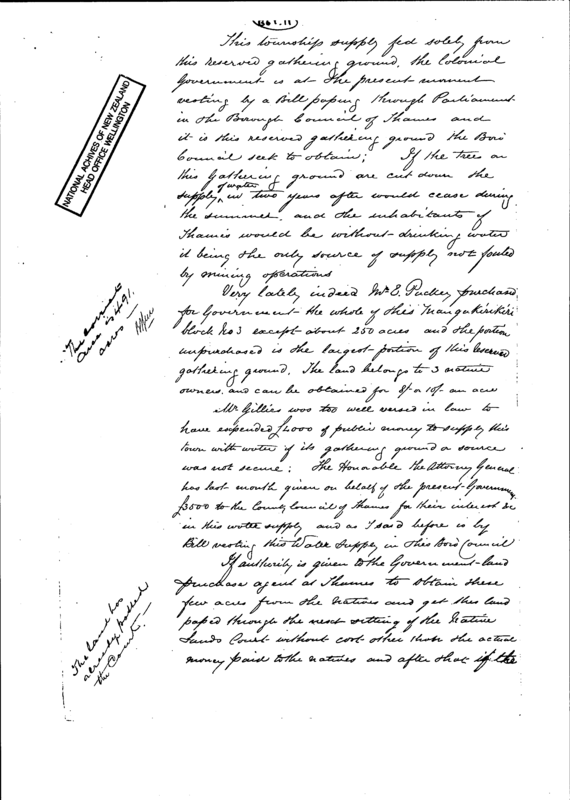 1661.11
This township supply fed solely from
this reserved gathering ground, the Colonial
Government is at the present moment
vesting by a Bill passing through Parliament
in the Borough Council of Thames and
it is this reserved gathering ground the Boro'
Council seek to obtain; If the trees on
this Gathering ground are cut down the
supply of water in two years after would cease during
the summer, and the inhabitants of
Thames would be without drinking water
it being the only source of supply not fouled
by mining operations
Very lately indeed Mr E. Puckey purchased
for Government the whole of this Maungakirikiri
block No 3 except about 250 acres and the portion
unpurchased is the largest portion of this reserved
gathering ground. The land belongs to 3 native
owners and can be obtained for 8/- or 10/- an acre
Mr Gillies was too well versed in law to
have expended £4000 of public money to supply this
town with water if its gathering ground or source
was not secure; The Honorable the Attorney General
has last month given on behalf of the present Government
£3000 to the County Council of Thames for their interest &c
in this water supply and as I said before is by
Bill vesting this Water Supply in this Boro' Council
If authority is given to the Government land
purchase agent at Thames to obtain these
few acres from the Natives and get this land
passed through the next sitting of the Native
Lands Court without cost other than the actual
money paid to the natives and after that if the
NATIONAL ACHIVES OF NEW ZEALAND
HEAD OFFICE WELLINGTON
The correct
area is 491.
acres
The land has
already passed
the Court.